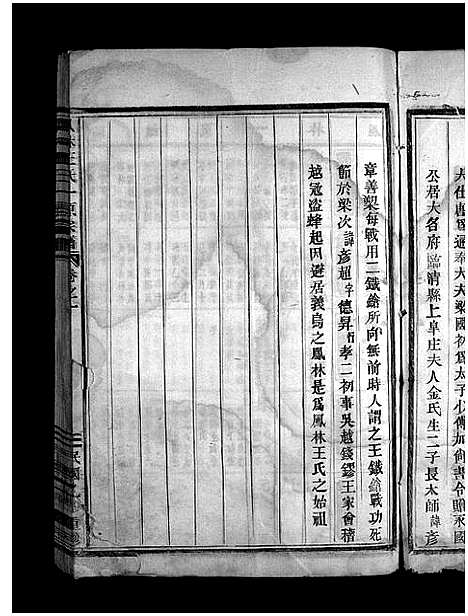 大仕唐爲通奉大夫梁國初爲太子少傅加尙書令贈
公居大名府臨清縣上阜庄夫人金氏生二子長太師諱彥
章善槊每戰用二鐵鎗所向無前時人謂之王鐵鎗戰功死
節於梁次諱彥超字德昇行孝二初事吳越錢鏐王家會稽
越冠盜蜂起因避居義烏之鳳林是爲鳳林王氏之始祖
王氏
宗譜
卷之一
民國